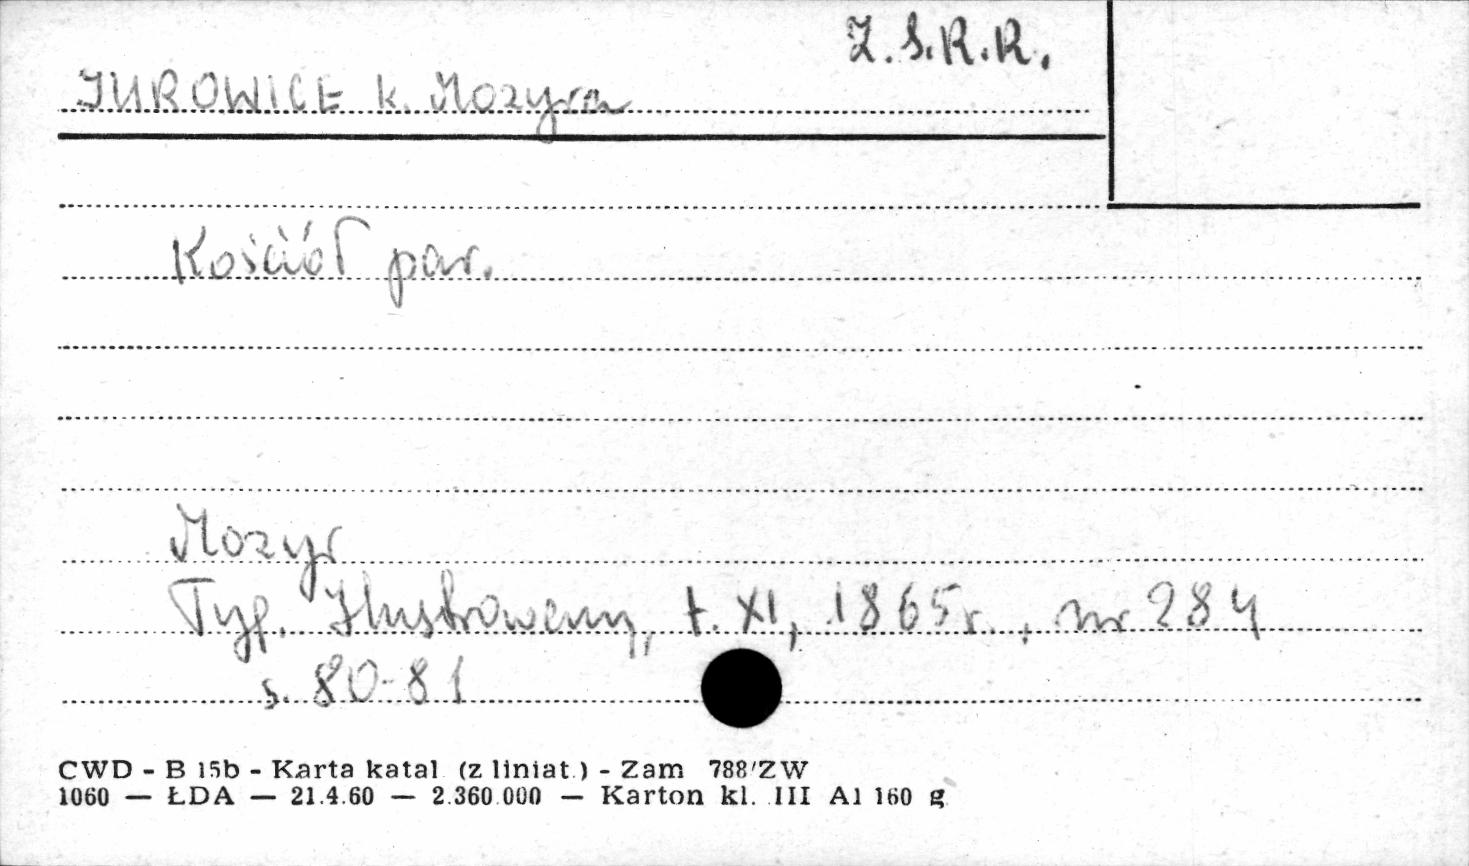 Z.S.R.R.
JUROWICE k. Mozyra
Kościół par.
Mozyr
Tyg. Ilustrowany, t. XI, 1865r., nr 284
s. 80-81
CWD - B 15b - Karta katal. (z liniat.) - Zam 788/ZW
1060 — ŁDA — 21.4.60 — 2.360.000 — Karton kl. III A1 160 g